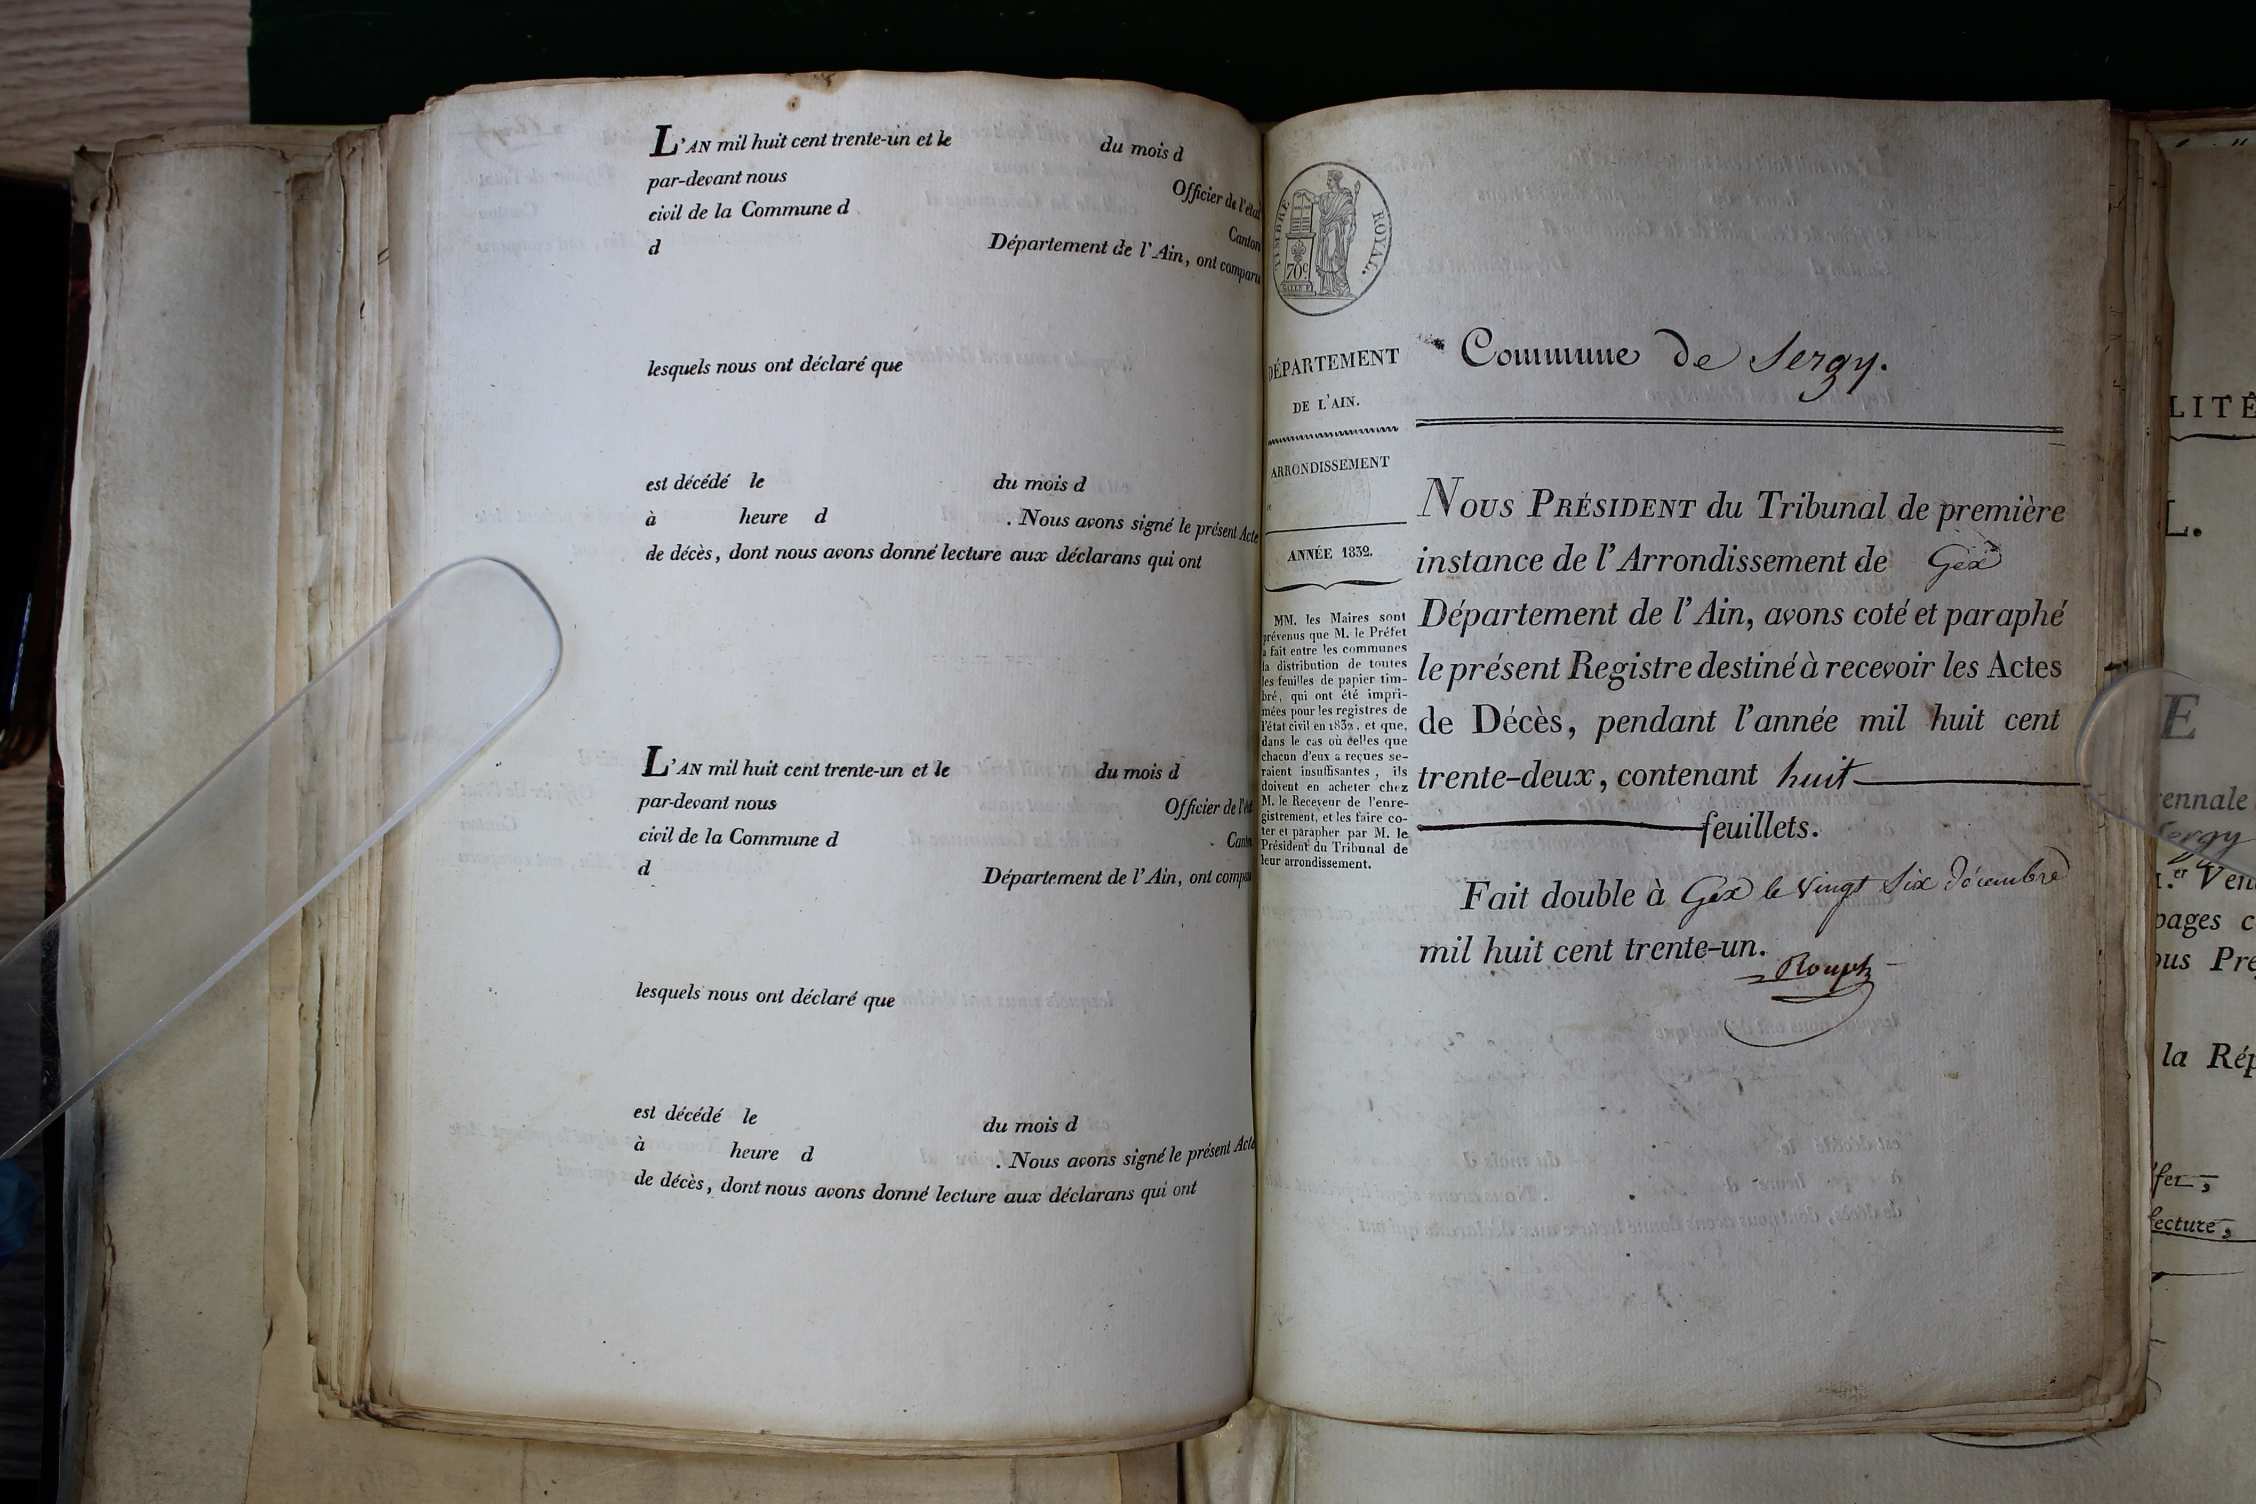 L'AN mil huit cent trente-un et le du mois d
par-devant nous Officier de l'état
civil de la Commune d Canton
d Département de l'Ain, ont comparu
lesquels nous ont déclaré que
est décédé le du mois d
à heure d . Nous avons signé le présent Acte
de décès, dont nous avons donné lecture aux déclarans qui ont
L'AN mil huit cent trente-un et le du mois d
par-devant nous Officier de l'ét
civil de la Commune d Canton
d Département de l'Ain, ont compa
lesquels nous ont déclaré que
est décédé le du mois d
à heure d . Nous avons signé le présent Acte
de décès, dont nous avons donné lecture aux déclarans qui ont
TIMBRE ROYAL.
70c
DÉPARTEMENT
DE L'AIN.
ARRONDISSEMENT
ANNÉE 1832.
MM. les Maires sont
prévenus que M. le Préfet
a fait entre les communes
la distribution de toutes
les feuilles de papier tim-
bré, qui ont été impri-
mées pour les registres de
l'état civil en 1832, et que,
dans le cas où celles que
chacun d'eux a reçues se-
raient insuffisantes, ils
doivent en acheter chez
M. le Receveur de l'enre-
gistrement, et les faire co-
ter et parapher par M. le
Président du Tribunal de
leur arrondissement.
Commune de Sergy.
NOUS PRÉSIDENT du Tribunal de première
instance de l'Arrondissement de Gex
Département de l'Ain, avons coté et paraphé
le présent Registre destiné à recevoir les Actes
de Décès, pendant l'année mil huit cent
trente-deux, contenant huit
feuillets.
Fait double à Gex le vingt six Décembre
mil huit cent trente-un.
Rouph
LITÉ
L.
E
ennale
Sergy
1.er Ven
pages c
ous Pré
la Rép
fer,
lecture,